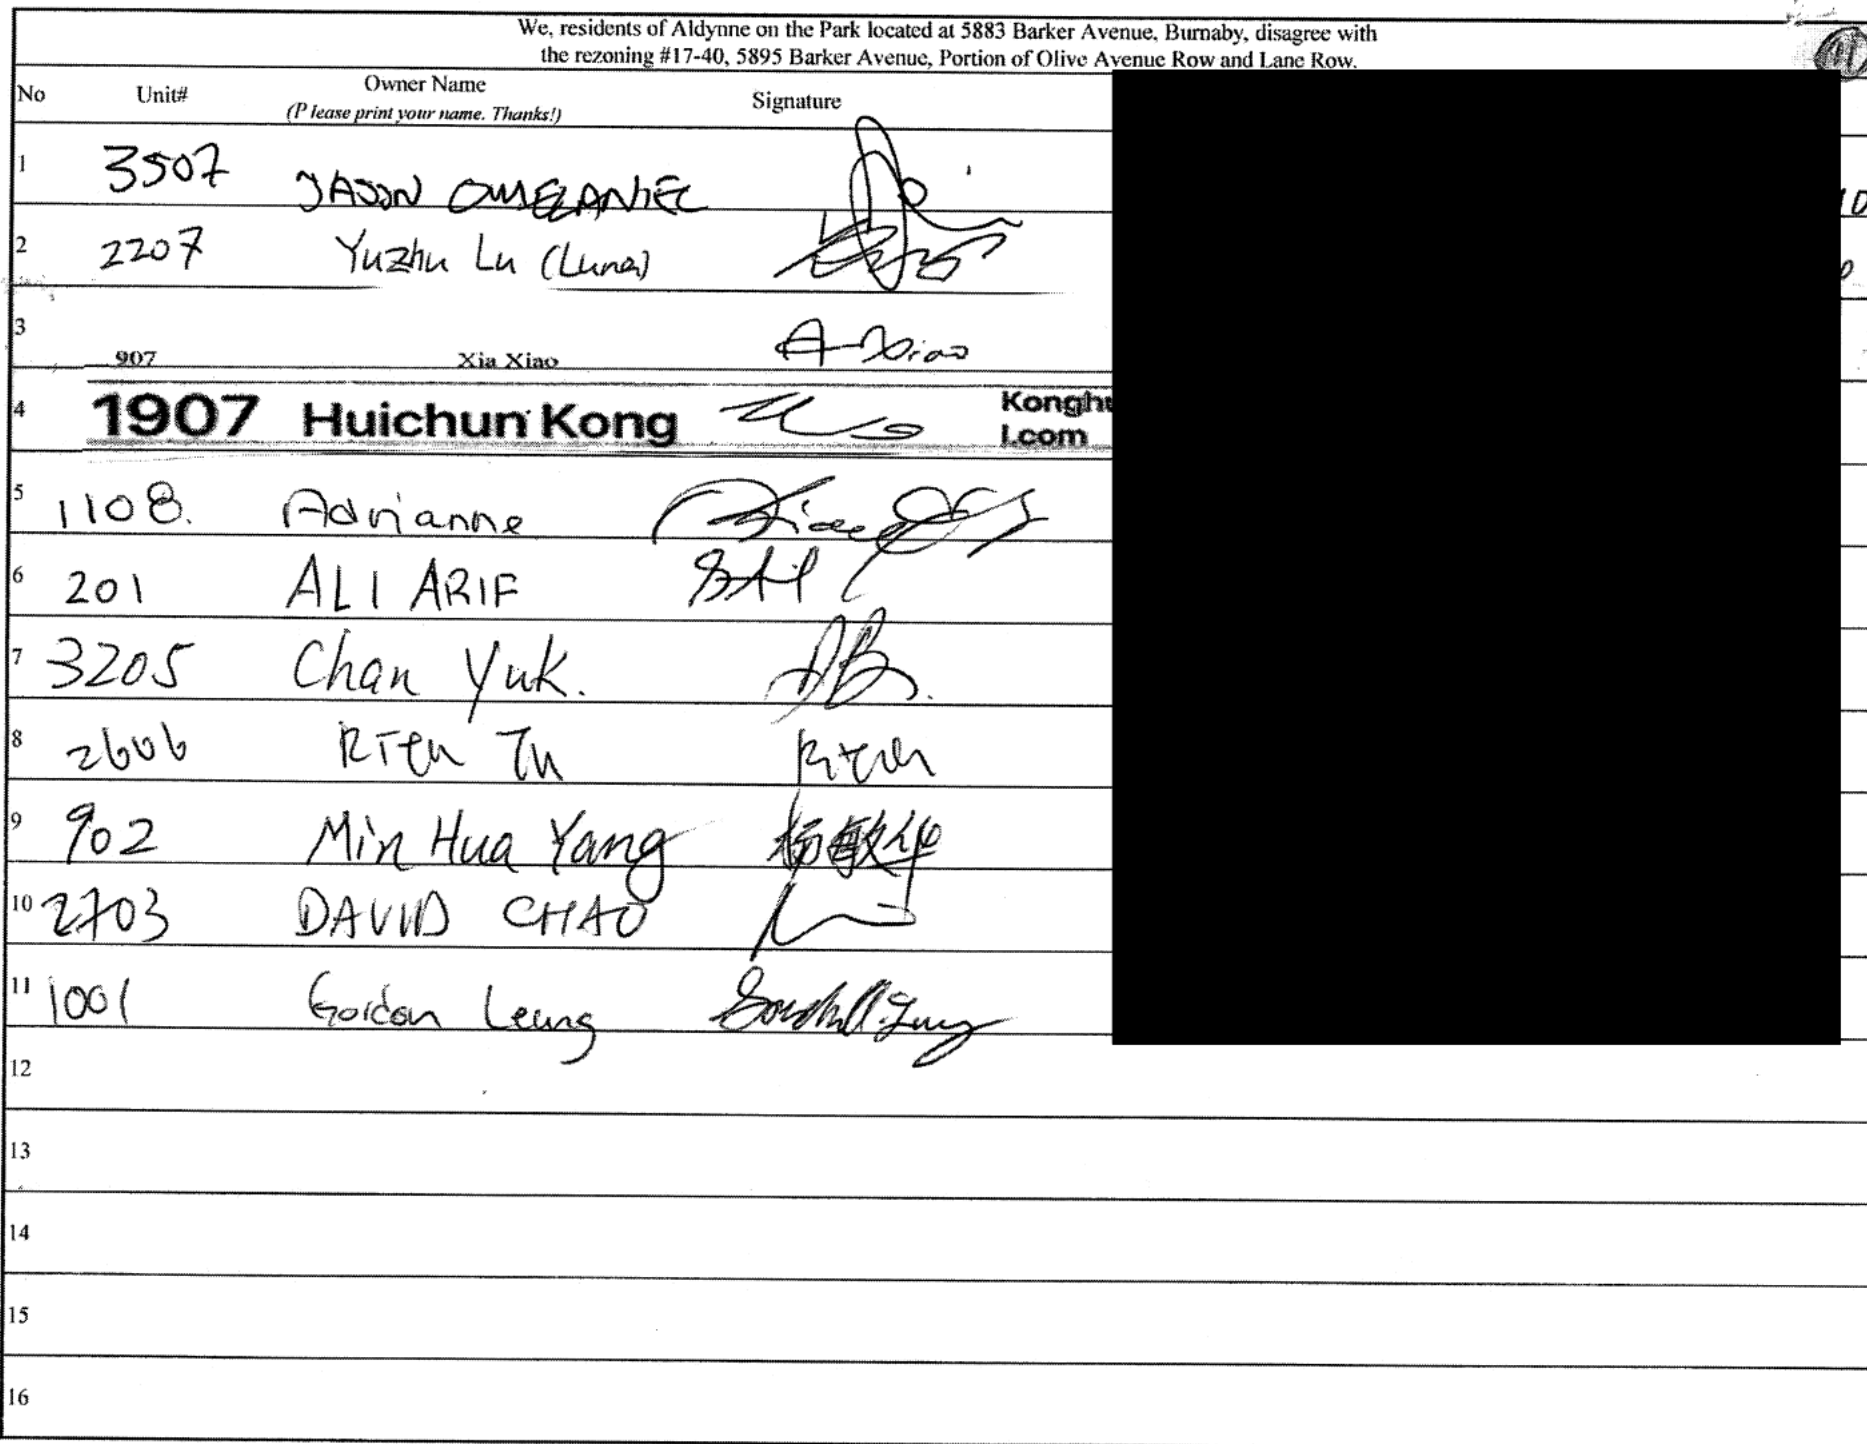 We, residents of Aldynne on the Park located at 5883 Barker Avenue, Burnaby, disagree with
the rezoning #17-40, 5895 Barker Avenue, Portion of Olive Avenue Row and Lane Row.
No Unit# Owner Name Signature
(Please print your name. Thanks!)
1 3507 JASON OMELANIEC
2 2207 Yuzhu Lu (Luna)
3 907 Xia Xiao A Xiao
4 1907 Huichun Kong Konghu
l.com
5 1108. Adrianne
6 201 ALI ARIF
7 3205 Chan Yuk.
8 2606 Tu
9 902 Min Hua Yang 杨敏华
10 2703 DAVID CHAO
11 1001 Gordon Leung
12
13
14
15
16